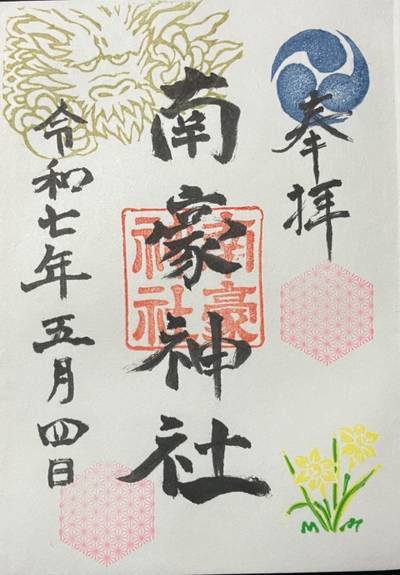 奉拝
南豪神社
南豪神社
令和七年五月四日